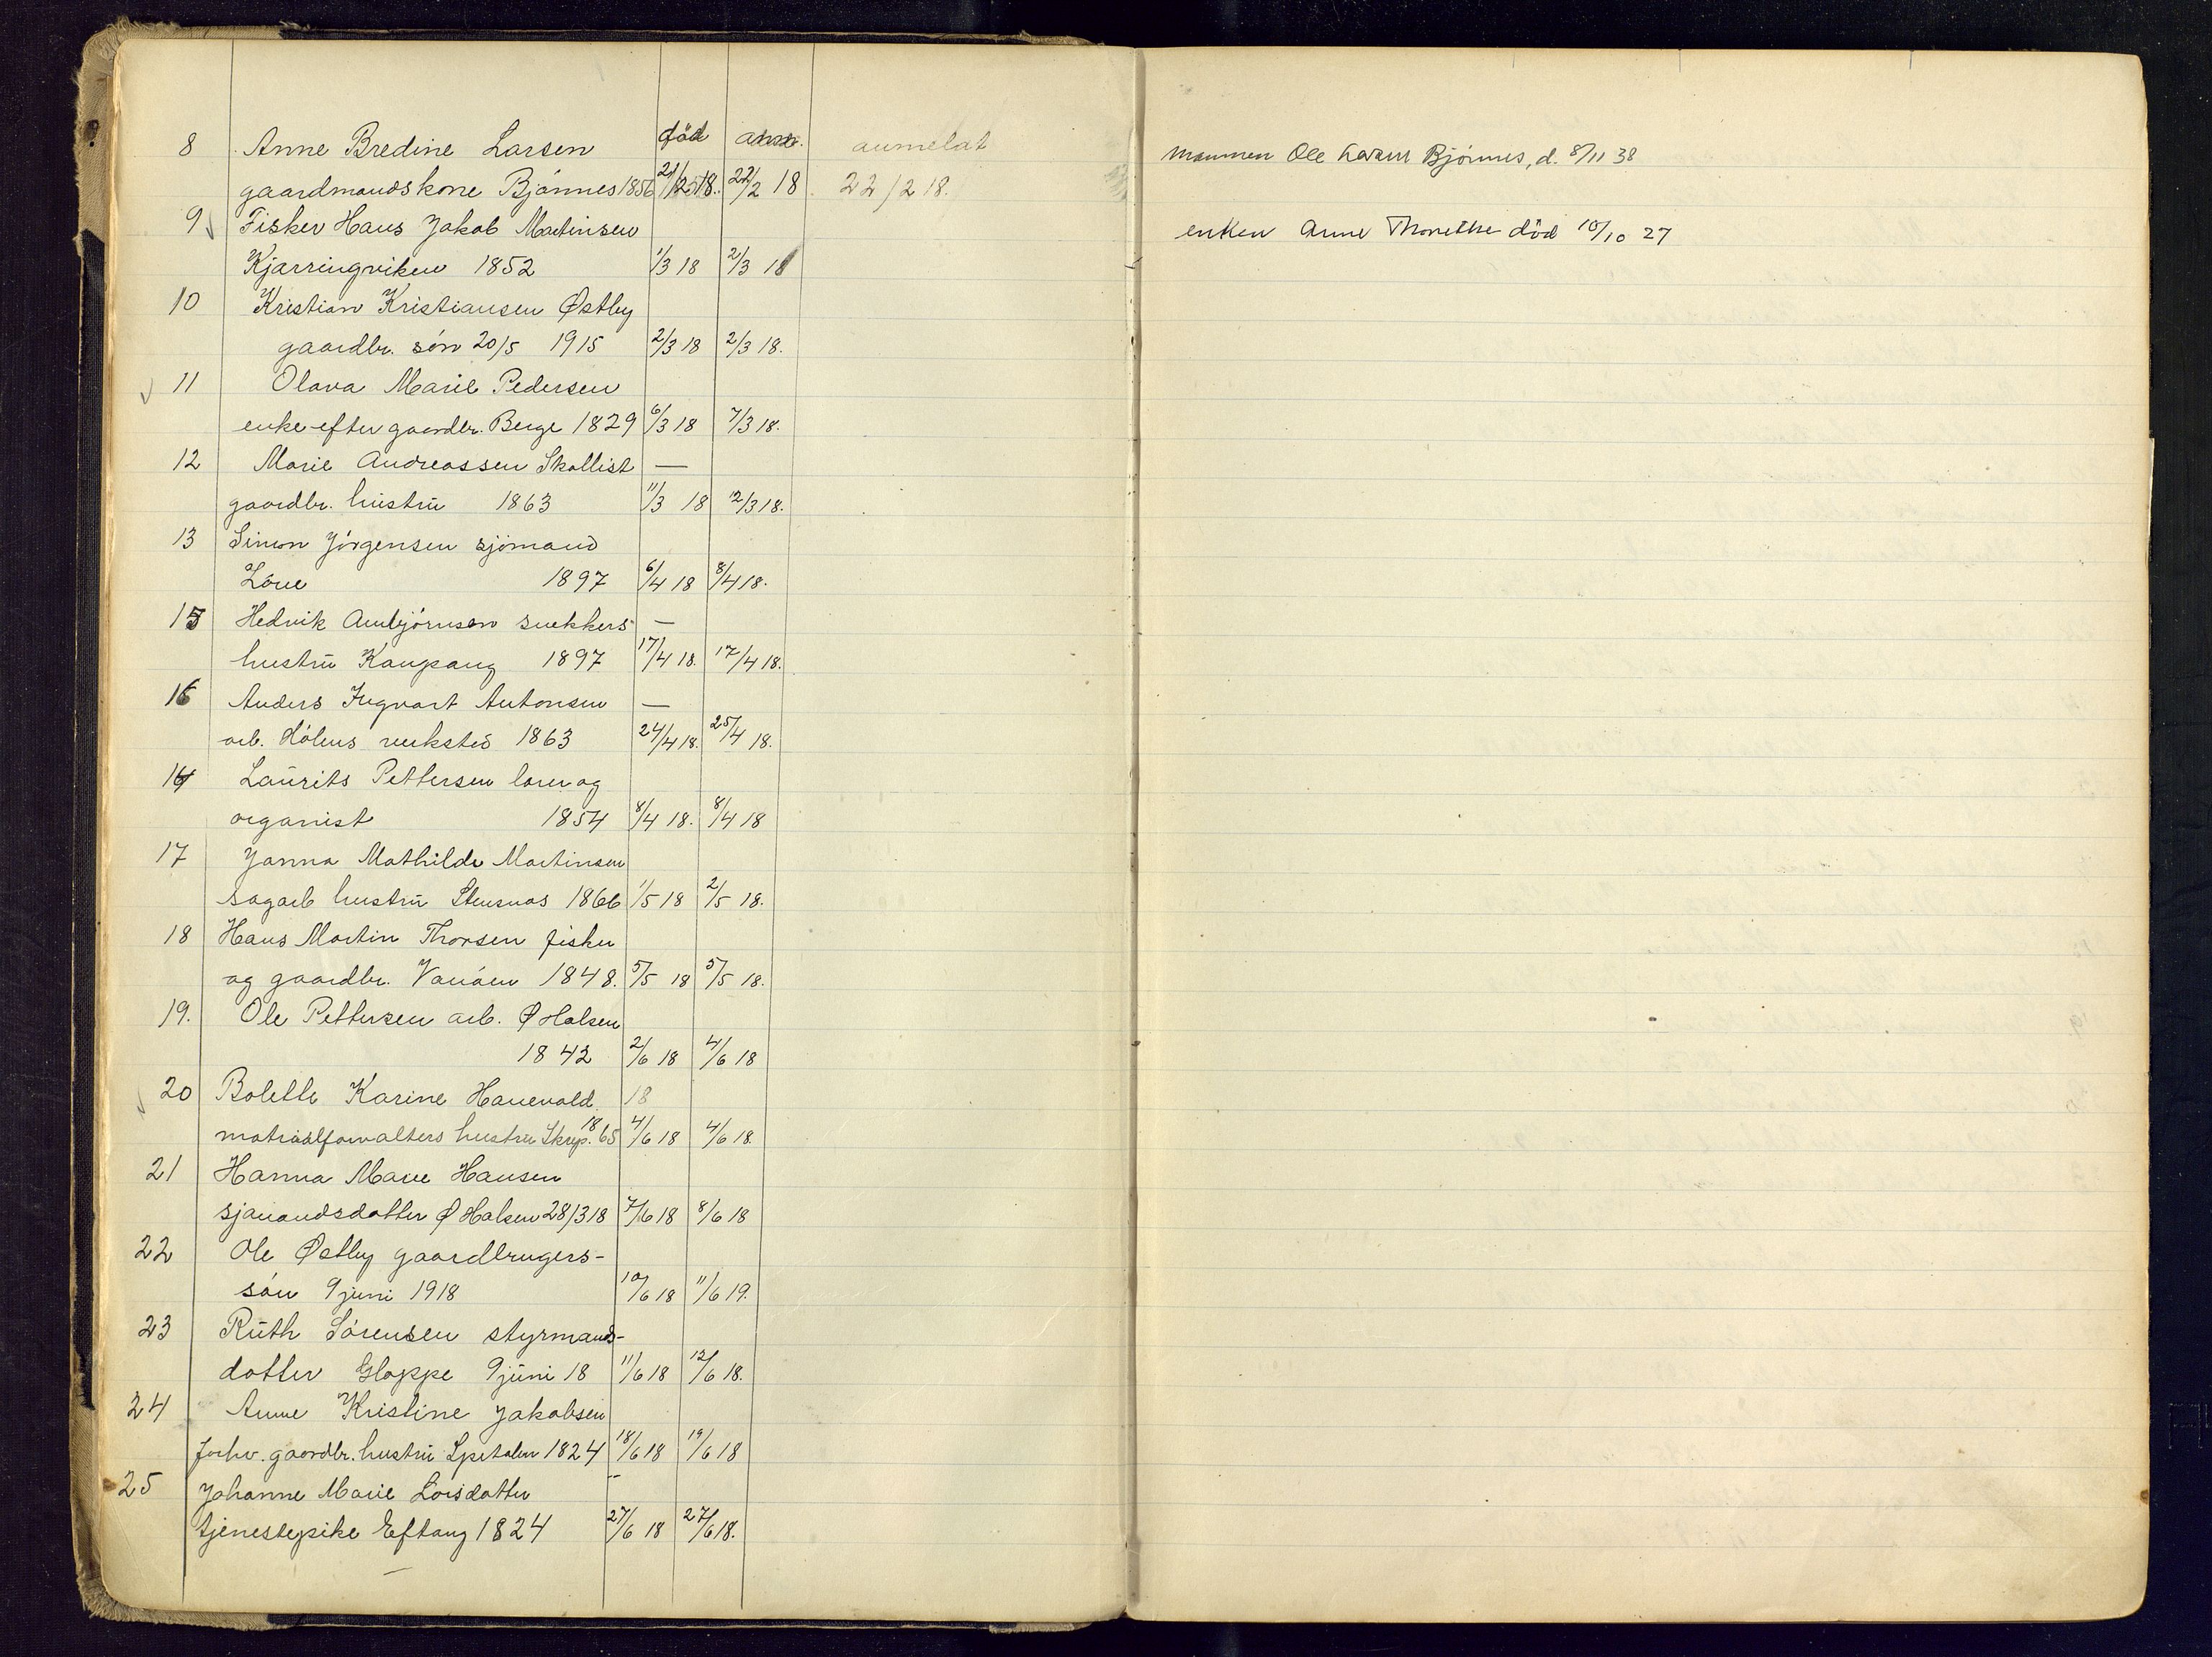 8 Anne Bredine Larsen død anm. anmeldt
gaardmandskone Bjönnes 1856 18. 22/2 18 22/2 18.
9 Fisker Hans Jakob Martinsen
Kjærringviken 1852 1/3 18 2/3 18
10 Kristian Kristiansen Østby
gaardbr. sön 20/5 1915 2/3 18 2/3 18.
11 Olava Marie Pedersen
enke efter gaardbr. Berge 1829 6/3 18 7/3 18.
12 Marie Andreassen Skallist —
gaardbr. hustru 1863 11/3 18 12/3 18.
13 Simon Jörgensen sjömand
Löve 1897 6/4 18 8/4 18.
15 Hedvik Anbjörnsen snekkers —
hustru Kaupang 1897 17/4 18. 17/4 18.
16 Anders Ingvart Antonsen —
arb. Hölens verksted 1863 24/4 18. 25/4 18.
14 Laurits Pettersen lærer og
organist 1854 8/4 18. 8/4 18
17 Janna Mathilde Martinsen
sagarb hustru Stensnæs 1866 1/5 18 2/5 18.
18 Hans Martin Thorsen fisker
og gaardbr. 1848. 5/5 18 5/5 18.
19. Ole Pettersen arb. Ø Halsen
1842 2/6 18 4/6 18
20 Bolette Karine Hanevold 18
matrialforvalters hustru Skrep. 1865 4/6 18 4/6 18.
21 Hanna Marie Hansen
sjömandsdatter Ø Halsen 28/3 18 7/6 18 8/6 18
22 Ole Østby gaardbrugers-
sön 9 juni 1918 10/6 18 11/6 19.
23 Ruth Sörensen styrmands-
datter Gloppe 9 juni 18 11/6 18 12/6 18.
24 Anne Kristine Jakobsen
forhv. gaardbr. hustru Spetalen 1824 18/6 18 19/6 18
25 Johanne Marie Larsdatter —
tjenestepike Eftang 1824 27/6 18 27/6 18.
—
mannen Ole Larsen Bjönnes, d. 8/11 38
enken Anne Thorethe död 10/10 27